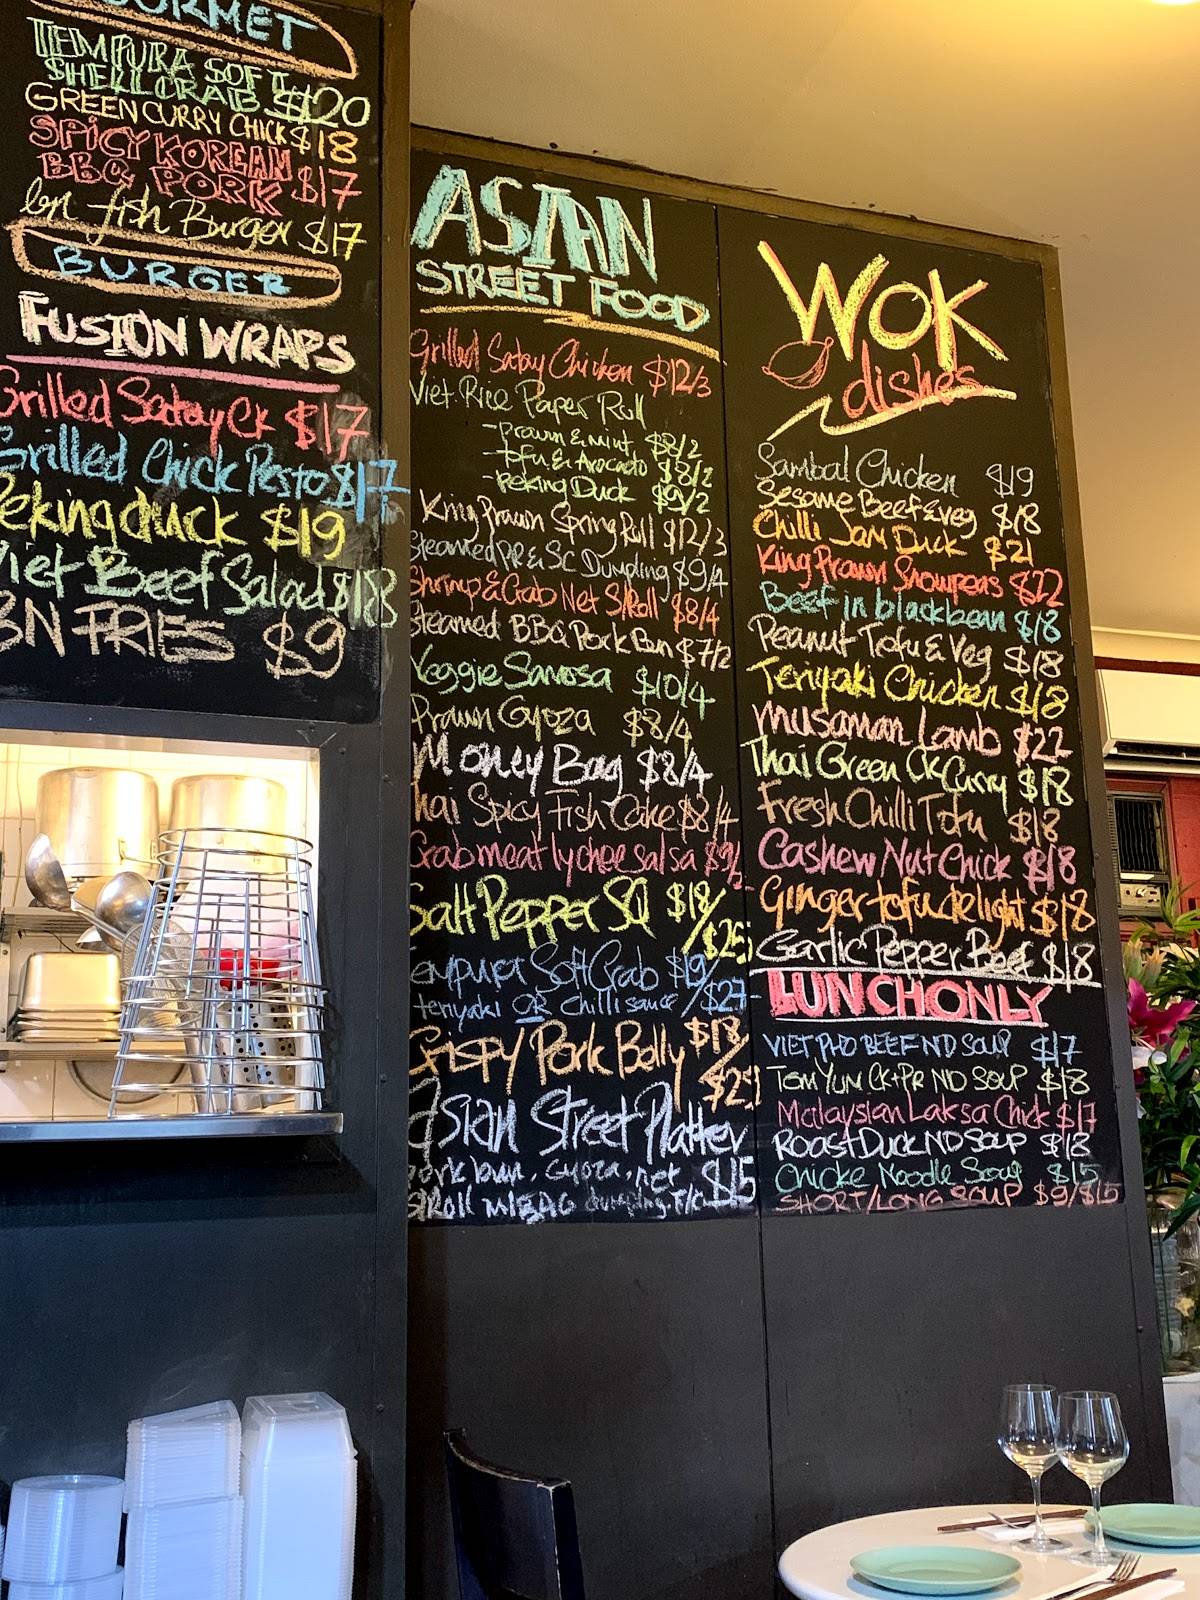 GOURMET
TEMPURA SOFT
SHELLCRAB $20
GREEN CURRY CHICK $18
SPICY KOREAN
BBQ PORK $17
bn fish Burger $17
BURGER
FUSION WRAPS
Grilled Satay Ck $17
Grilled Chick Pesto $17
Peking duck $19
Viet Beef Salad $18
BN FRIES $9
ASIAN
STREET FOOD
Grilled Satay Chicken $12/3
Viet Rice Paper Roll
- Prawn & Mint $8/2
- tofu & Avocado $8/2
- Peking Duck $9/2
King Prawn Spring Roll $12/3
Steamed PR & SC Dumpling $9/4
Shrimp & Crab Net S/Roll $8/4
Steamed BBQ Pork Bun $7/2
Veggie Samosa $10/4
Prawn Gyoza $8/4
Money Bag $8/4
Thai Spicy Fish Cake $8/4
Crabmeat lychee salsa $9/
Salt Pepper SQ $18/
$25
Tempura Soft Crab $19/
teriyaki OR chilli sauce /$27
Crispy Pork Belly $18/
$25
Asian Street Platter
pork bun, gyoza, net $15
S/Roll M/BAG dumpling, F/C
WOK
dishes
Sambal Chicken $19
Sesame Beef & veg $18
Chilli Jam Duck $21
King Prawn Snowpeas $22
Beef in blackbean $18
Peanut Tofu & Veg $18
Teriyaki Chicken $18
Musaman Lamb $22
Thai Green Ck Curry $18
Fresh Chilli Tofu $18
Cashew Nut Chick $18
Ginger tofu delight $18
Garlic Pepper Beef $18
LUNCH ONLY
VIET PHO BEEF ND SOUP $17
TOM YUM CK+PR ND SOUP $18
Malaysian Laksa Chick $17
ROAST DUCK ND SOUP $18
Chicke Noodle Soup $15
SHORT/LONG SOUP $9/$15